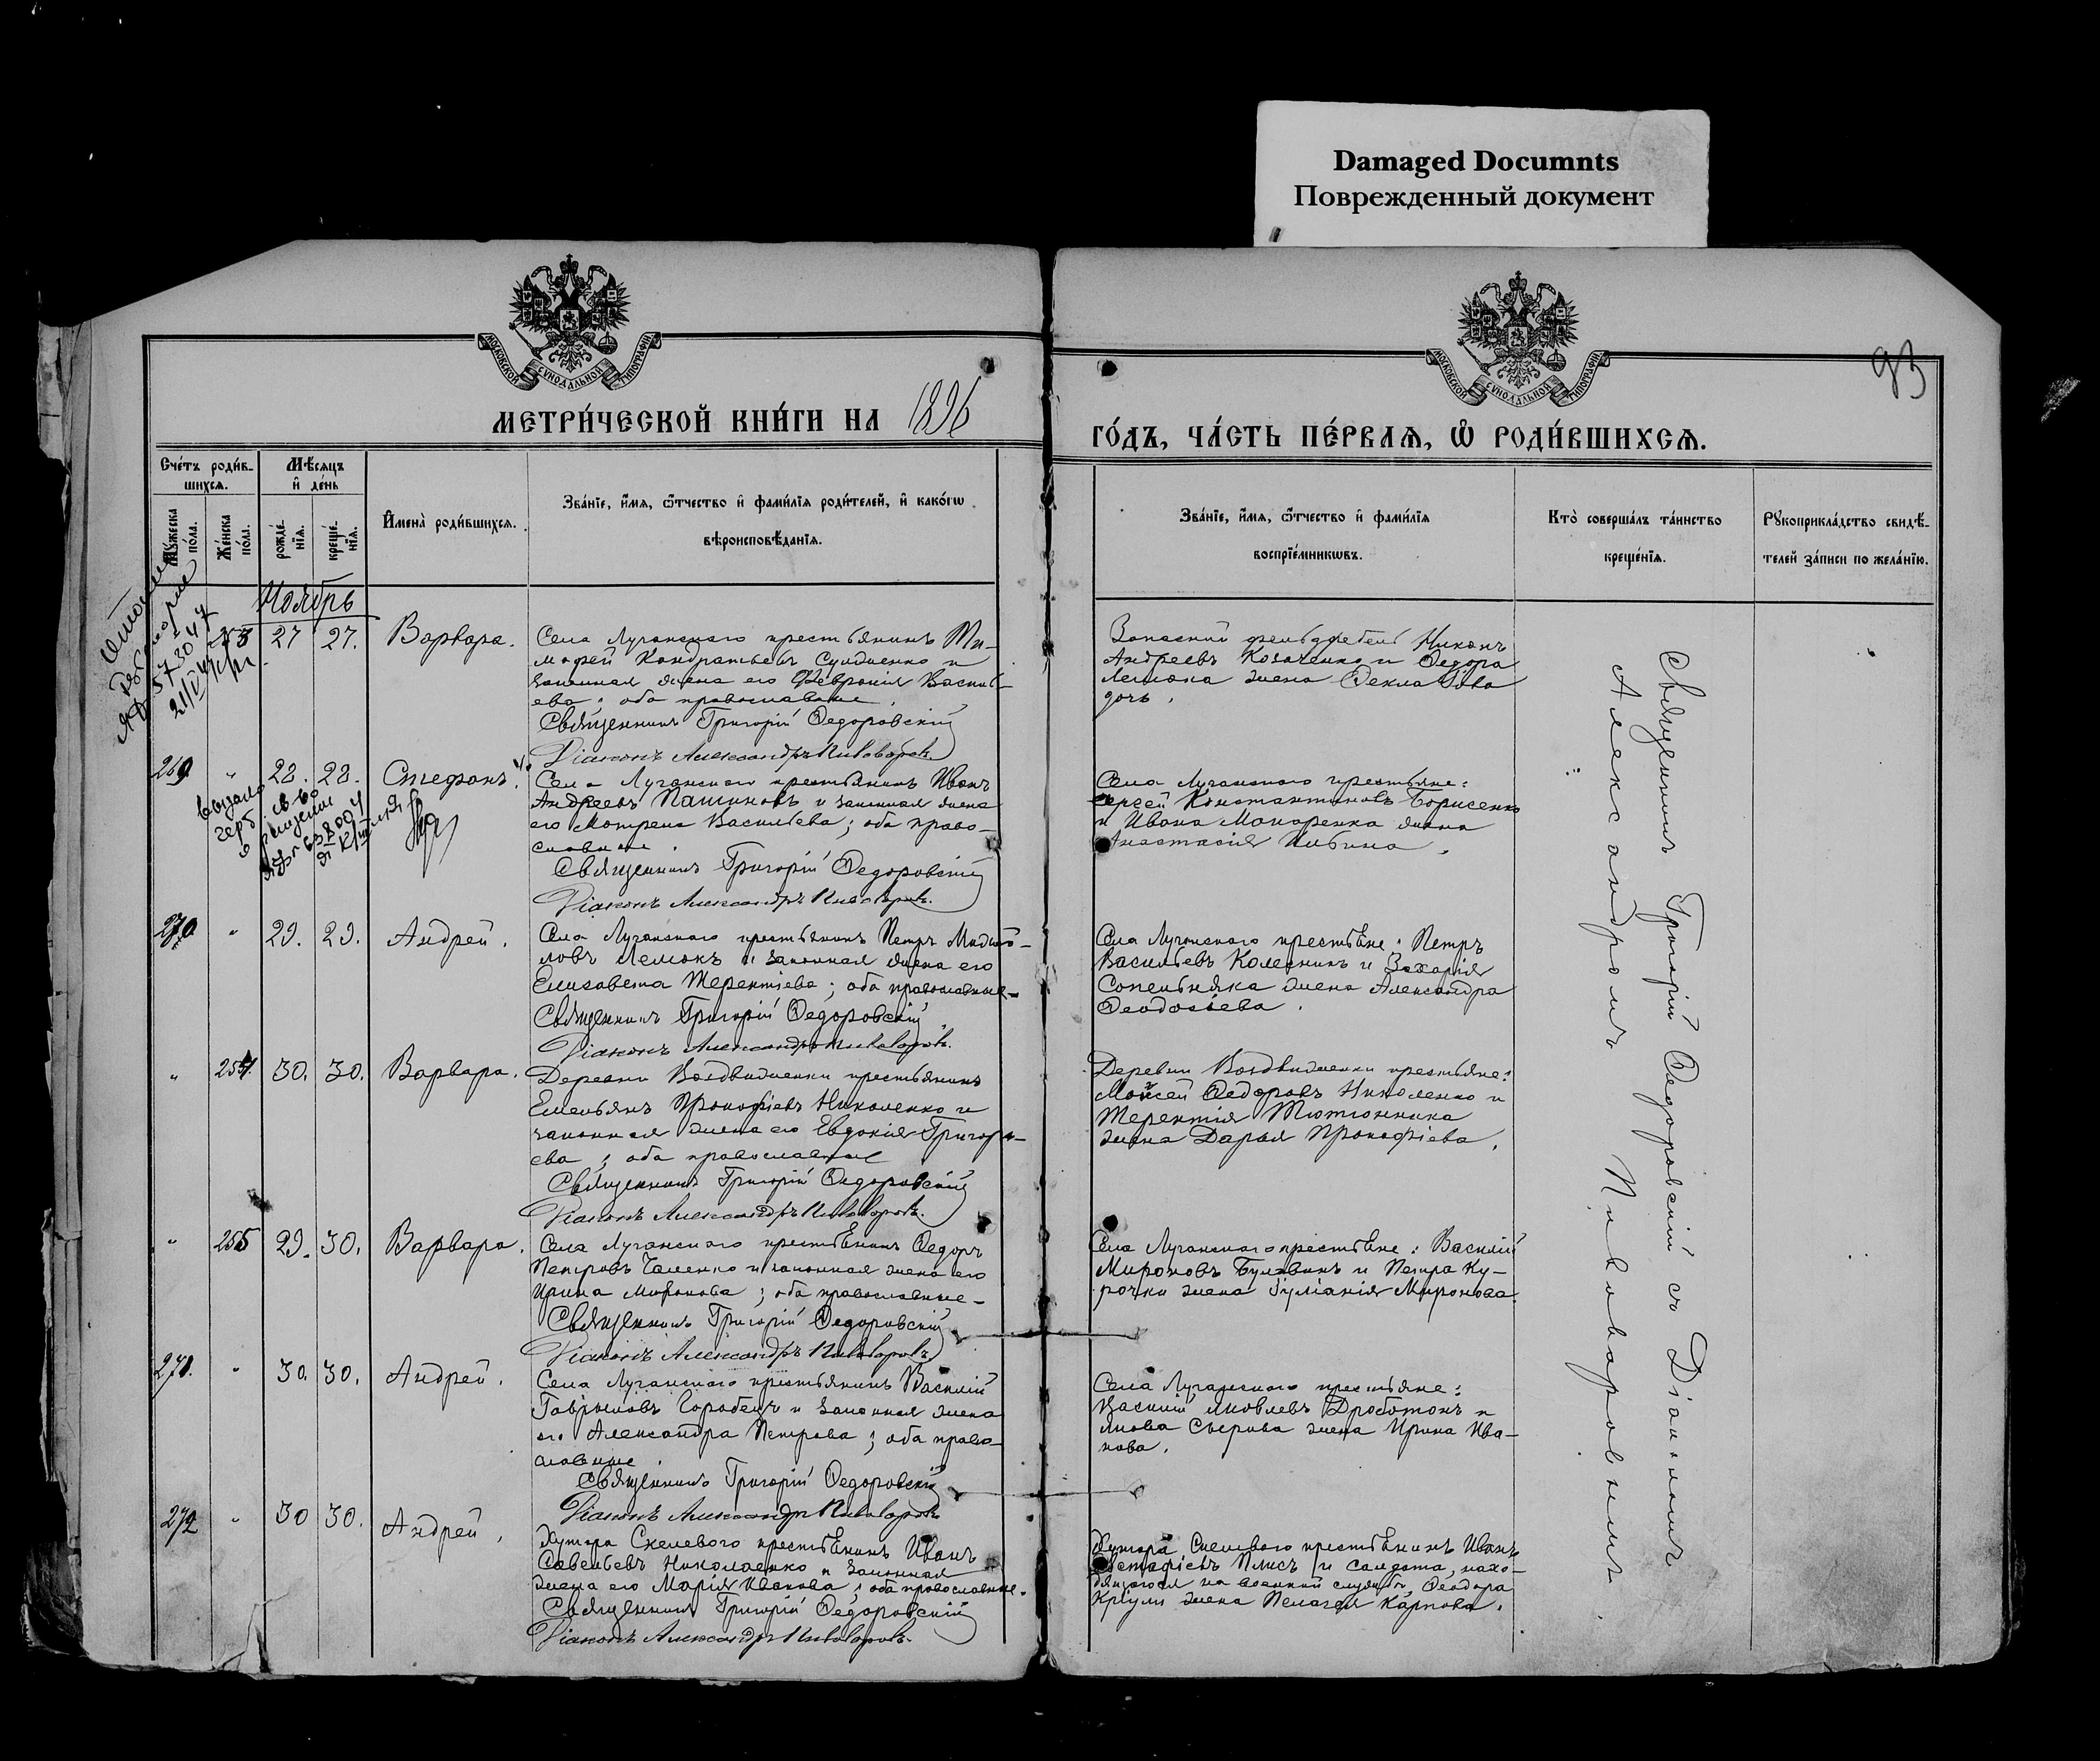 Damaged Documnts
Поврежденный документ
МОСКОВСКОЙ СУНОДАЛЬНОЙ ТИПОГРАФІИ
МОСКОВСКОЙ СУНОДАЛЬНОЙ ТИПОГРАФІИ
93
МЕТРИ́ЧЕСКОЙ КНИ́ГИ НА 1896
ГО́ДЪ, ЧА́СТЬ ПЕ́РВАѦ, Ѽ РОДИ́ВШИХСѦ.
Сче́тъ роди́в-
шихсѧ.
Мѣ́сѧцъ
и҆ де́нь
Мꙋ́жеска по́ла.
Же́нска по́ла.
рожде́-нїѧ.
креще́-нїѧ.
И҆мена̀ роди́вшихсѧ.
Зва́нїе, и҆́мѧ, ѻ҆́тчество и҆ фами́лїѧ роди́телей, и҆ како́гѡ
вѣроисповѣ́данїѧ.
Зва́нїе, и҆́мѧ, ѻ҆́тчество и҆ фами́лїѧ
воспрїе́мникѡвъ.
Кто̀ соверша́лъ та́инство
креще́нїѧ.
Рꙋкоприкла́дство свидѣ́-
телей за́писи по жела́нїю.
Ноябрь
253 27 27. Варвара.
Села Луганскаго крестьянинъ Ти-
мофей Кондратьевъ и
законная жена его Феврония Василь-
ева; оба православные.
Священникъ Григорій Ѳедоровскій
Діаконъ Александръ Пивоваровъ.
Запасный фельдфебель Никонъ
Андреевъ Козаченко и Ѳедора
Лемока жена Ѳекла
дочь.
269 " 28. 28. Стефанъ.
Села Луганскаго крестьянинъ Иванъ
Андреевъ Пашиновъ и законная жена
его Мотрена Васильева; оба право-
славные.
Священникъ Григорій Ѳедоровскій
Діаконъ Александръ Пивоваровъ.
Села Луганскаго крестьяне:
Сергей Константиновъ Борисенко
и Ивана Макаренка жена
Анастасія
270 " 29. 29. Андрей.
Села Луганскаго крестьянинъ Петръ Михай-
ловъ Лемокъ и законная жена его
Елисавета Терентіева; оба православные
Священникъ Григорій Ѳедоровскій
Діаконъ Александръ Пивоваровъ.
Села Луганскаго крестьяне: Петръ
Васильевъ Колесникъ и Захарія
Сопельняка жена Александра
Ѳеодосіева.
" 254. 30. 30. Варвара.
Деревни Воздвиженки крестьянинъ
Емельянъ Прокофіевъ Николенко и
законная жена его Евдокія Григорь-
ева; оба православные
Священникъ Григорій Ѳедоровскій
Діаконъ Александръ Пивоваровъ.
Деревни Воздвиженки крестьяне:
Моисей Ѳедоровъ Николенко и
Терентія Тютюнника
жена Дарья Прокофіева.
" 255 29. 30. Варвара.
Села Луганскаго крестьянинъ Ѳедоръ
Петровъ Чаленко и законная жена его
Ирина Миронова; оба православные
Священникъ Григорій Ѳедоровскій
Діаконъ Александръ Пивоваровъ
Села Луганскаго крестьяне: Василій
Мироновъ Булавинъ и Петра Ку-
рочки жена Іуліанія Миронова.
271. " 30. 30. Андрей.
Села Луганскаго крестьянинъ Василій
Гавриловъ Горобецъ и законная жена
его Александра Петрова; оба право-
славные.
Священникъ Григорій Ѳедоровскій
Діаконъ Александръ Пивоваровъ
Села Луганскаго крестьяне:
Василій Яковлевъ Дроботонъ и
Якова жена Ирина Ива-
нова.
272 " 30 30. Андрей.
Хутора Скелеваго крестьянинъ Иванъ
Савельевъ Николаенко и законная
жена его Марія Иванова; оба православные.
Священникъ Григорій Ѳедоровскій
Діаконъ Александръ Пивоваровъ.
Хутора Скелеваго крестьянинъ Иванъ
Евстафіевъ Плисъ и солдата, нахо-
дящагося на военной службѣ, Ѳеодора
Кріули жена Пелагея Карпова.
Священникъ Григорій Ѳедоровскій съ Діакономъ
Александромъ Пивоваровымъ.